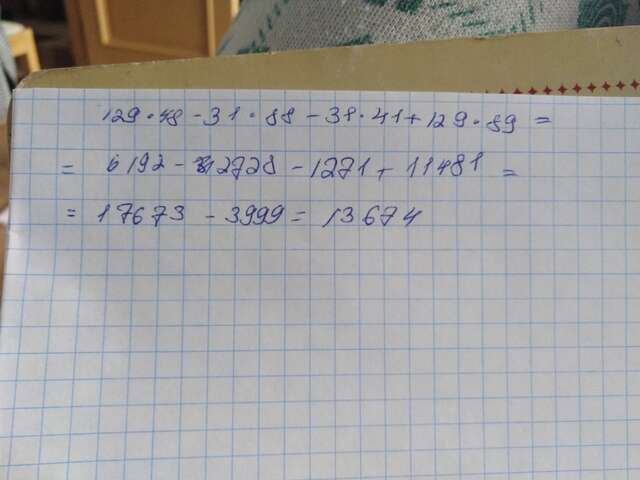 129·48-31·88-31·41+129·89=
= 6192-2728-1271+11481=
= 17673-3999=13674